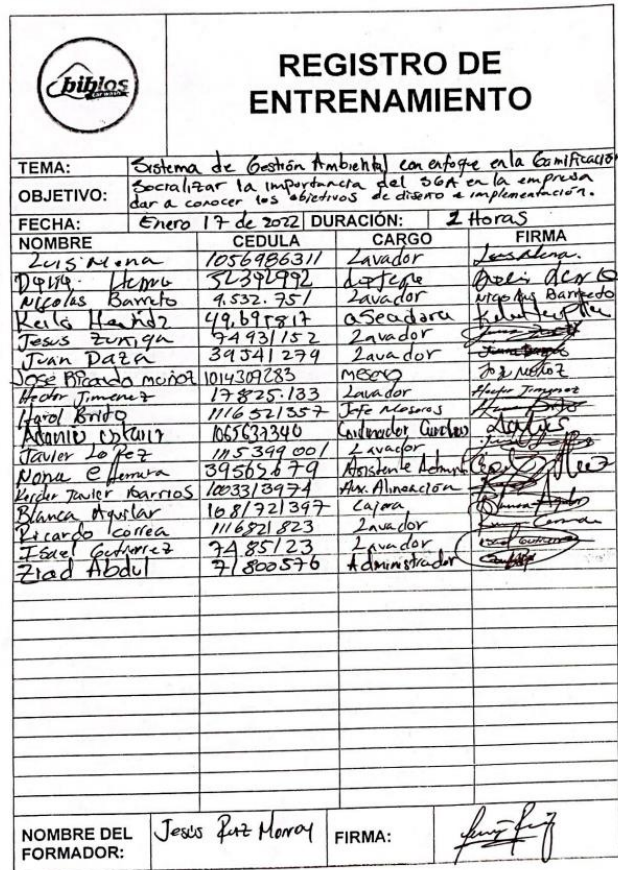 biblos
CAR WASH
REGISTRO DE
ENTRENAMIENTO
TEMA: Sistema de Gestión Ambiental con enfoque en la Gamificación
OBJETIVO: Socializar la importancia del SGA en la empresa
dar a conocer los objetivos de diseño e implementación.
FECHA: Enero 17 de 2022 DURACIÓN: 2 Horas
NOMBRE CEDULA CARGO FIRMA
Luis Mena 1056986311 Lavador Luis Mena.
52392992
Nicolas Barreto 9.532.751 Lavador Nicolas Barreto
Keila 49.695817 aseadora
Jesus Zuniga 74931152 Lavador
Juan Daza 39541279 Lavador
José Ricardo muñoz 1014309283 mesero José Muñoz
Hector Jimenez 17825.133 Lavador Hector Jimenez
Harol Brito 1116521357 Jefe Meseros
1065637340
Javier Lopez 1115399001 Lavador
39565679 Asistente Admin
Javier Barrios 1003313974 Aux. Alineación
Blanca Aguilar 1681721397 Cajera
Ricardo Correa 1116821823 Lavador
Isael Gutierrez 7485123 Lavador
Ziad Abdul 71800576 Administrador
NOMBRE DEL Jesús Ruiz Monroy FIRMA:
FORMADOR: